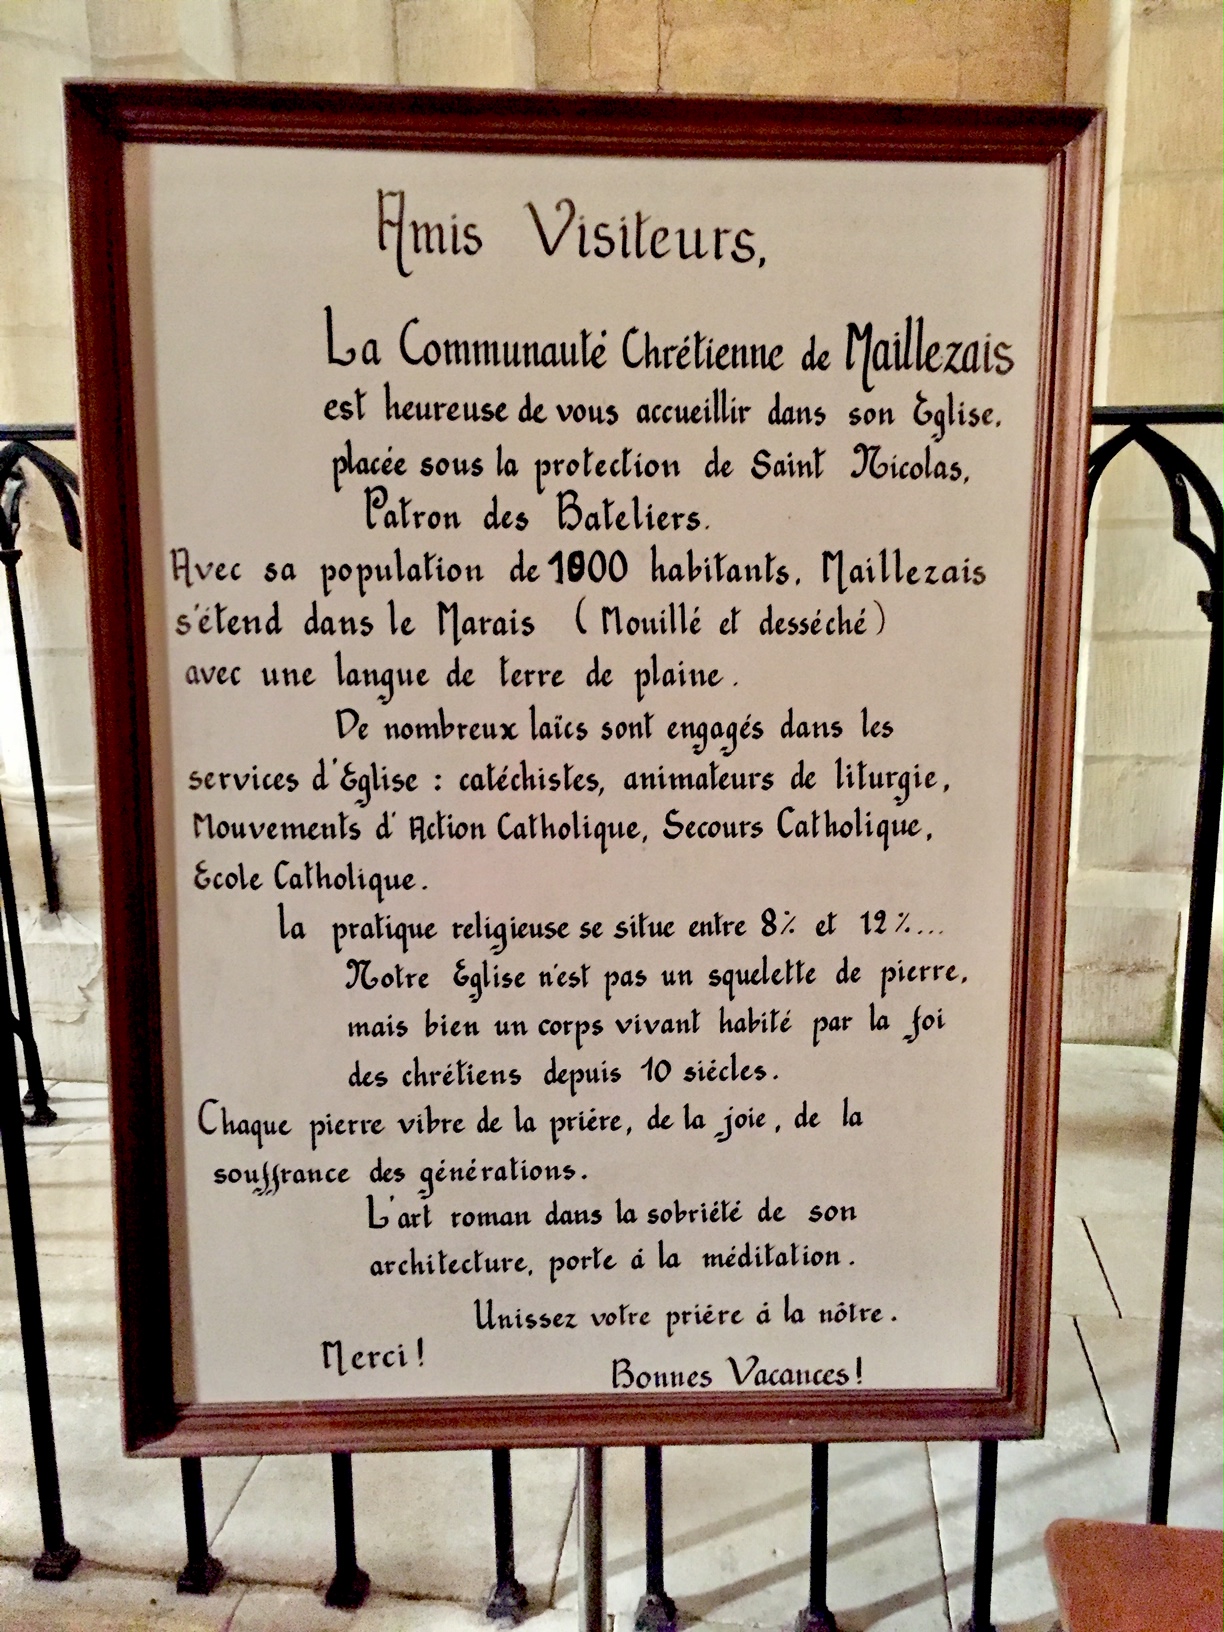 Amis Visiteurs,
La Communauté Chrétienne de Maillezais
est heureuse de vous accueillir dans son Eglise,
placée sous la protection de Saint Nicolas,
Patron des Bateliers.
Avec sa population de 1000 habitants, Maillezais
s'étend dans le Marais (Mouillé et desséché)
avec une langue de terre de plaine.
De nombreux laïcs sont engagés dans les
services d'Eglise : catéchistes, animateurs de liturgie,
Mouvements d'Action Catholique, Secours Catholique,
Ecole Catholique.
la pratique religieuse se situe entre 8% et 12%...
Notre Eglise n'est pas un squelette de pierre,
mais bien un corps vivant habité par la foi
des chrétiens depuis 10 siécles.
Chaque pierre vibre de la priére, de la joie, de la
souffrance des générations.
L'art roman dans la sobriété de son
architecture, porte á la méditation.
Unissez votre priére á la nôtre.
Merci !
Bonnes Vacances !